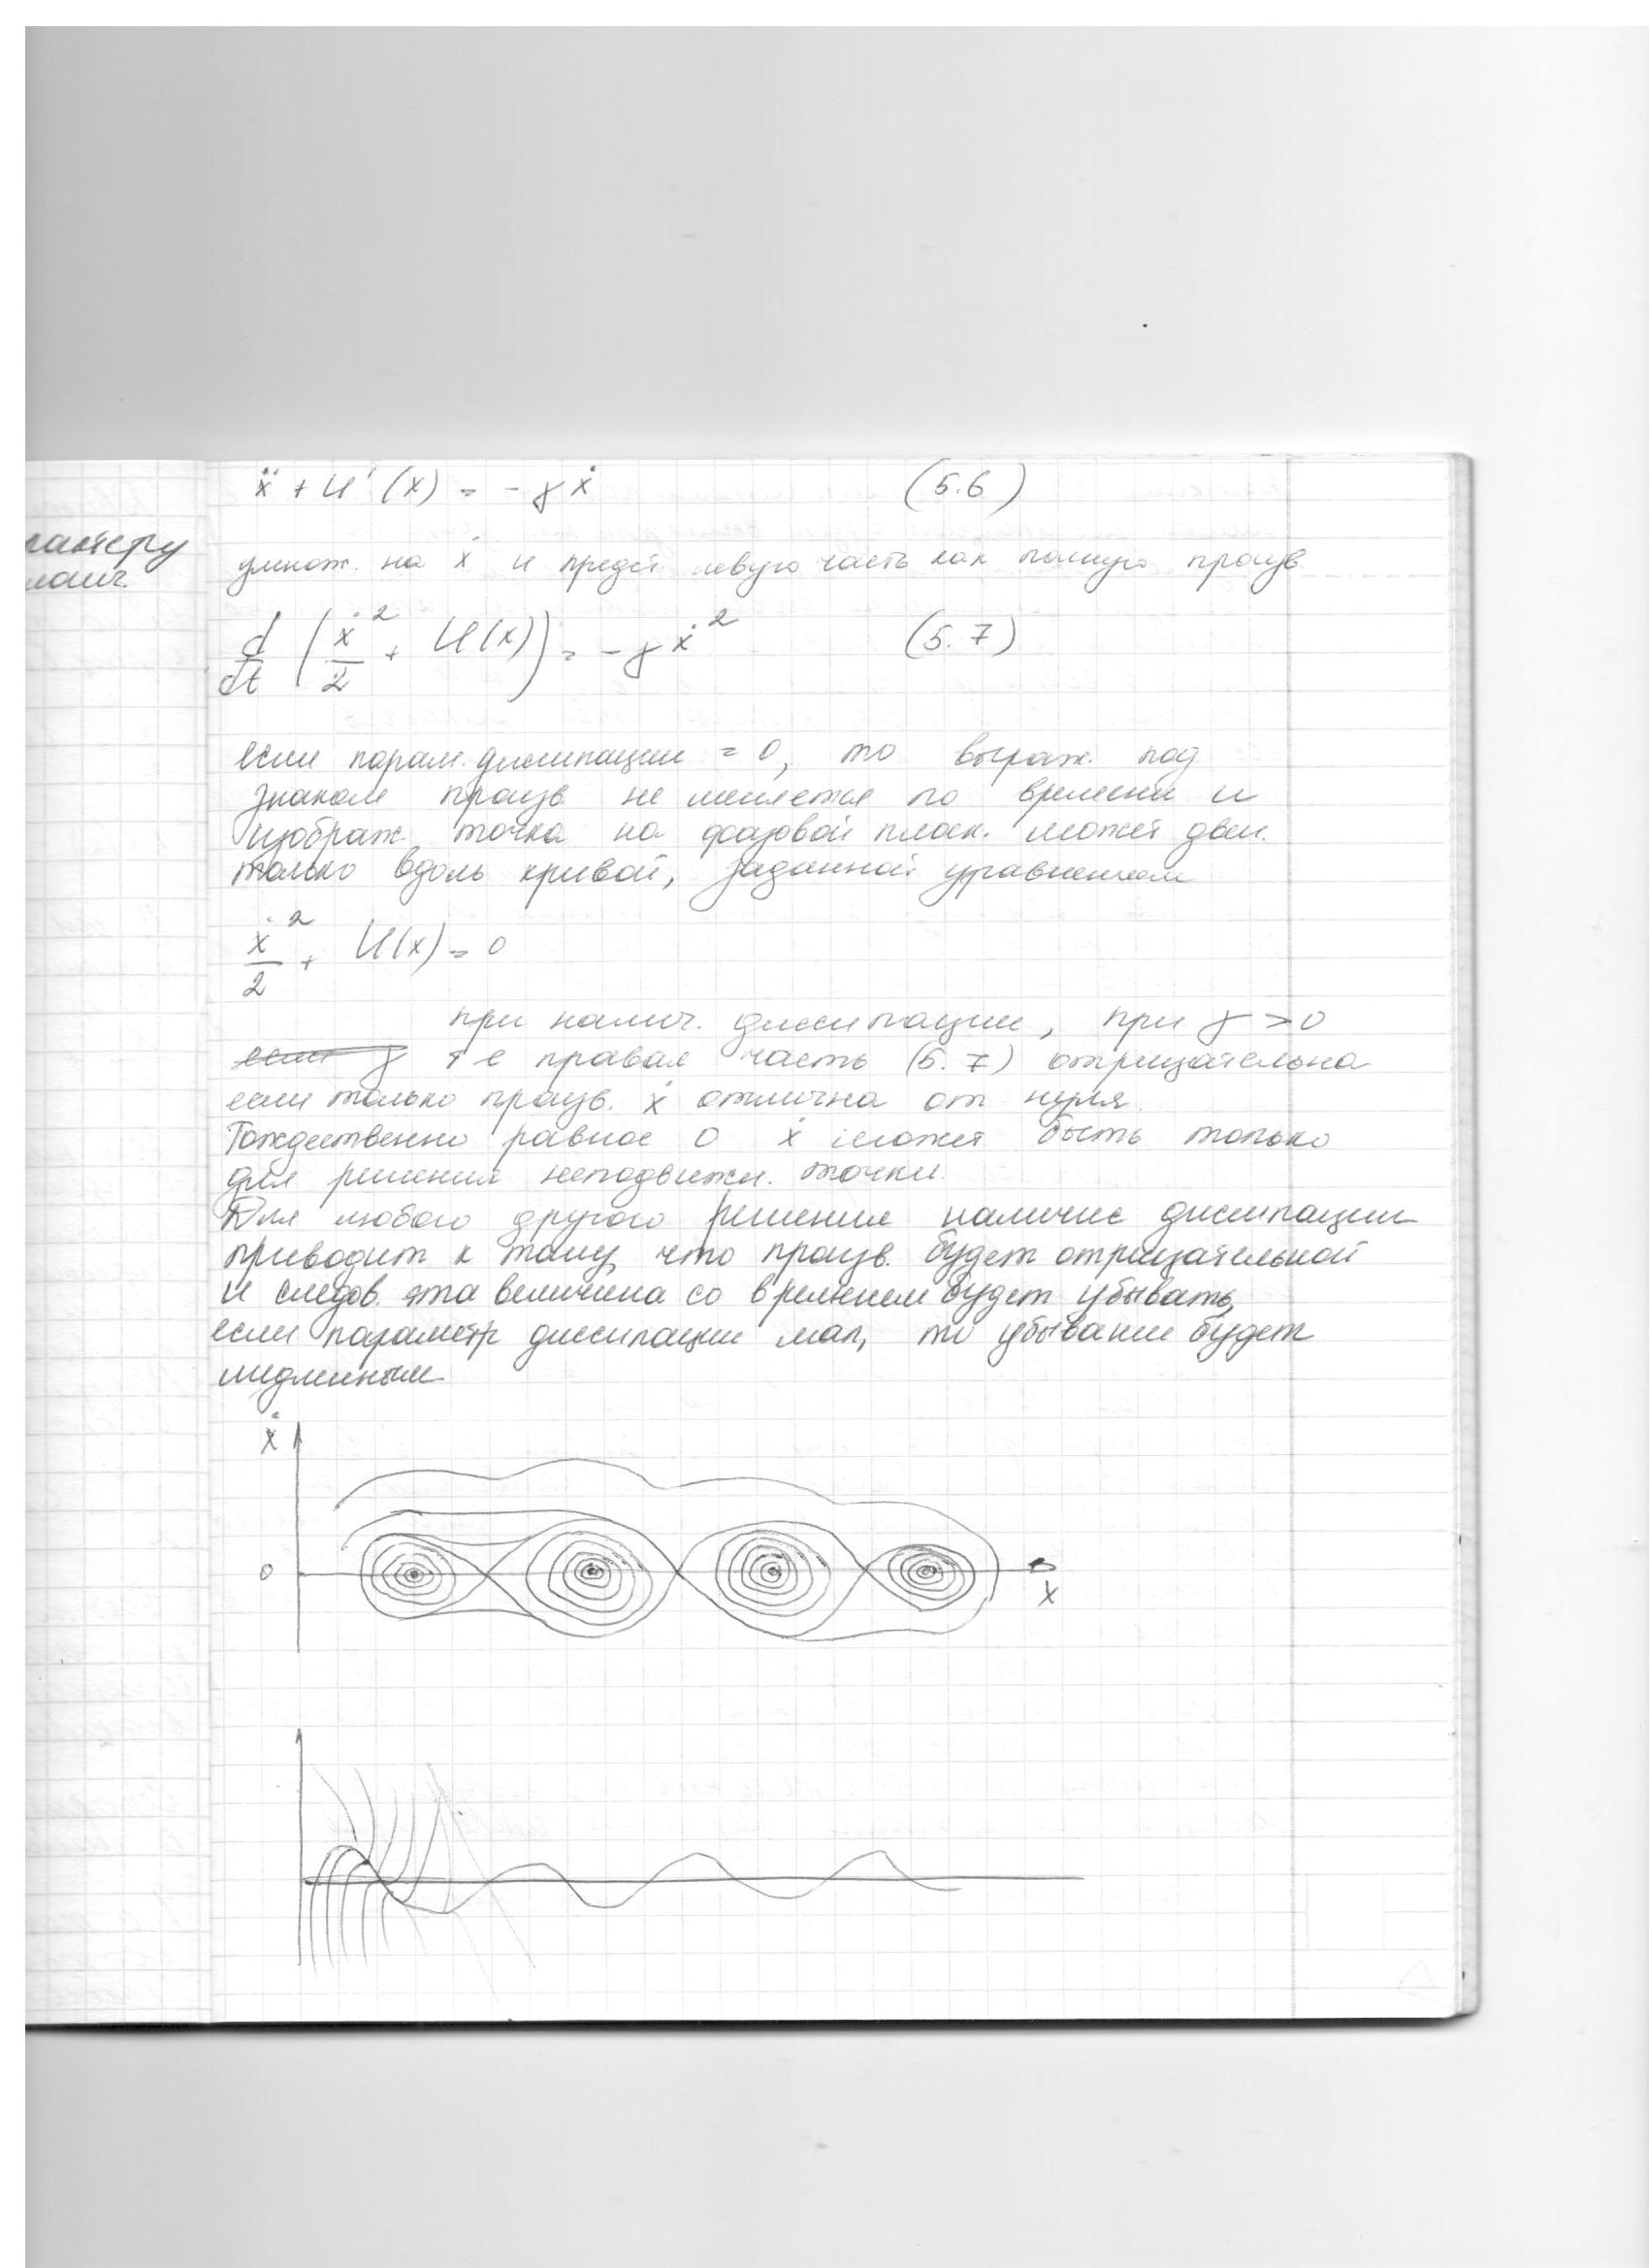 ẍ + U'(x) = -γẋ (5.6)
умнож. на ẋ и предст. левую часть как полную произв.
d/dt (ẋ²/2 + U(x)) = -γẋ² (5.7)
если парам. диссипации = 0, то выраж. под
знаком произв. не меняется по времени и
изображ. точка на фазовой плоск. может двиг.
только вдоль кривой, заданной уравнением
ẋ²/2 + U(x) = 0
при налич. диссипации, при γ > 0
если γ т е правая часть (5.7) отрицательна
если только произв. ẋ отлична от нуля.
Тождественно равное 0 ẋ может быть только
для решения неподвижн. точки.
Для любого другого решения наличие диссипации
приводит к тому, что произв. будет отрицательной
и следов. эта величина со временем будет убывать,
если параметр диссипации мал, то убывание будет
медленным
ẋ
0
x